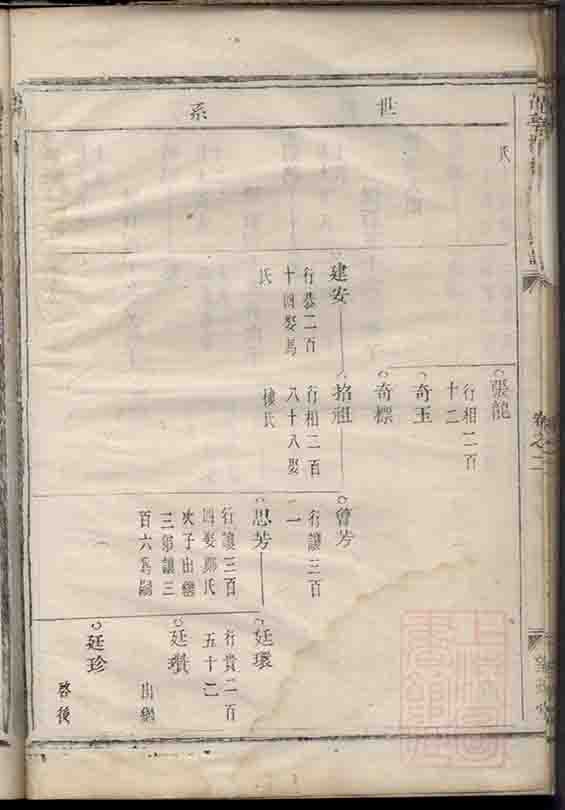 世系
氏
張龍
行相二百
十二
奇玉
奇標
建安
行恭二百
十四娶馬
氏
招祖
行相二百
八十八娶
氏
曾芳
行讓三百
一
思芳
行讓三百
四娶鄭氏
次子出繼
三弟讓三
百六為嗣
廷環
行貴二百
五十二
廷瓚
出繼
廷珍
啓後
卷之二